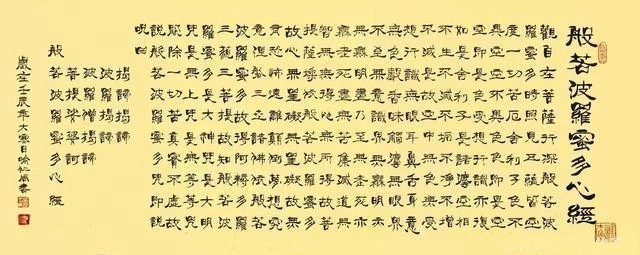 般若波羅蜜多心經
觀自在菩薩行深般若波
羅蜜多時照見五蘊皆空
度一切苦厄舍利子色不
異空空不異色色即是空
空即是色受想行識亦復
如是舍利子是諸法空相
不生不滅不垢不淨不增
不減是故空中無色無受
想行識無眼耳鼻舌身意
無色聲香味觸法無眼界
乃至無意識界無無明亦
無無明盡乃至無老死亦
無老死盡無苦集滅道無
智亦無得以無所得故菩
提薩埵依般若波羅蜜多
故心無罣礙無罣礙故無
有恐怖遠離顛倒夢想究
竟涅槃三世諸佛依般若
波羅蜜多故得阿耨多羅
三藐三菩提故知般若波
羅蜜多是大神咒是大明
咒是無上咒是無等等咒
能除一切苦真實不虛故
說般若波羅蜜多咒即說
咒曰
揭諦揭諦
波羅揭諦
波羅僧揭諦
菩提娑婆訶
般若波羅蜜多心經
歲在壬辰年大寒日書